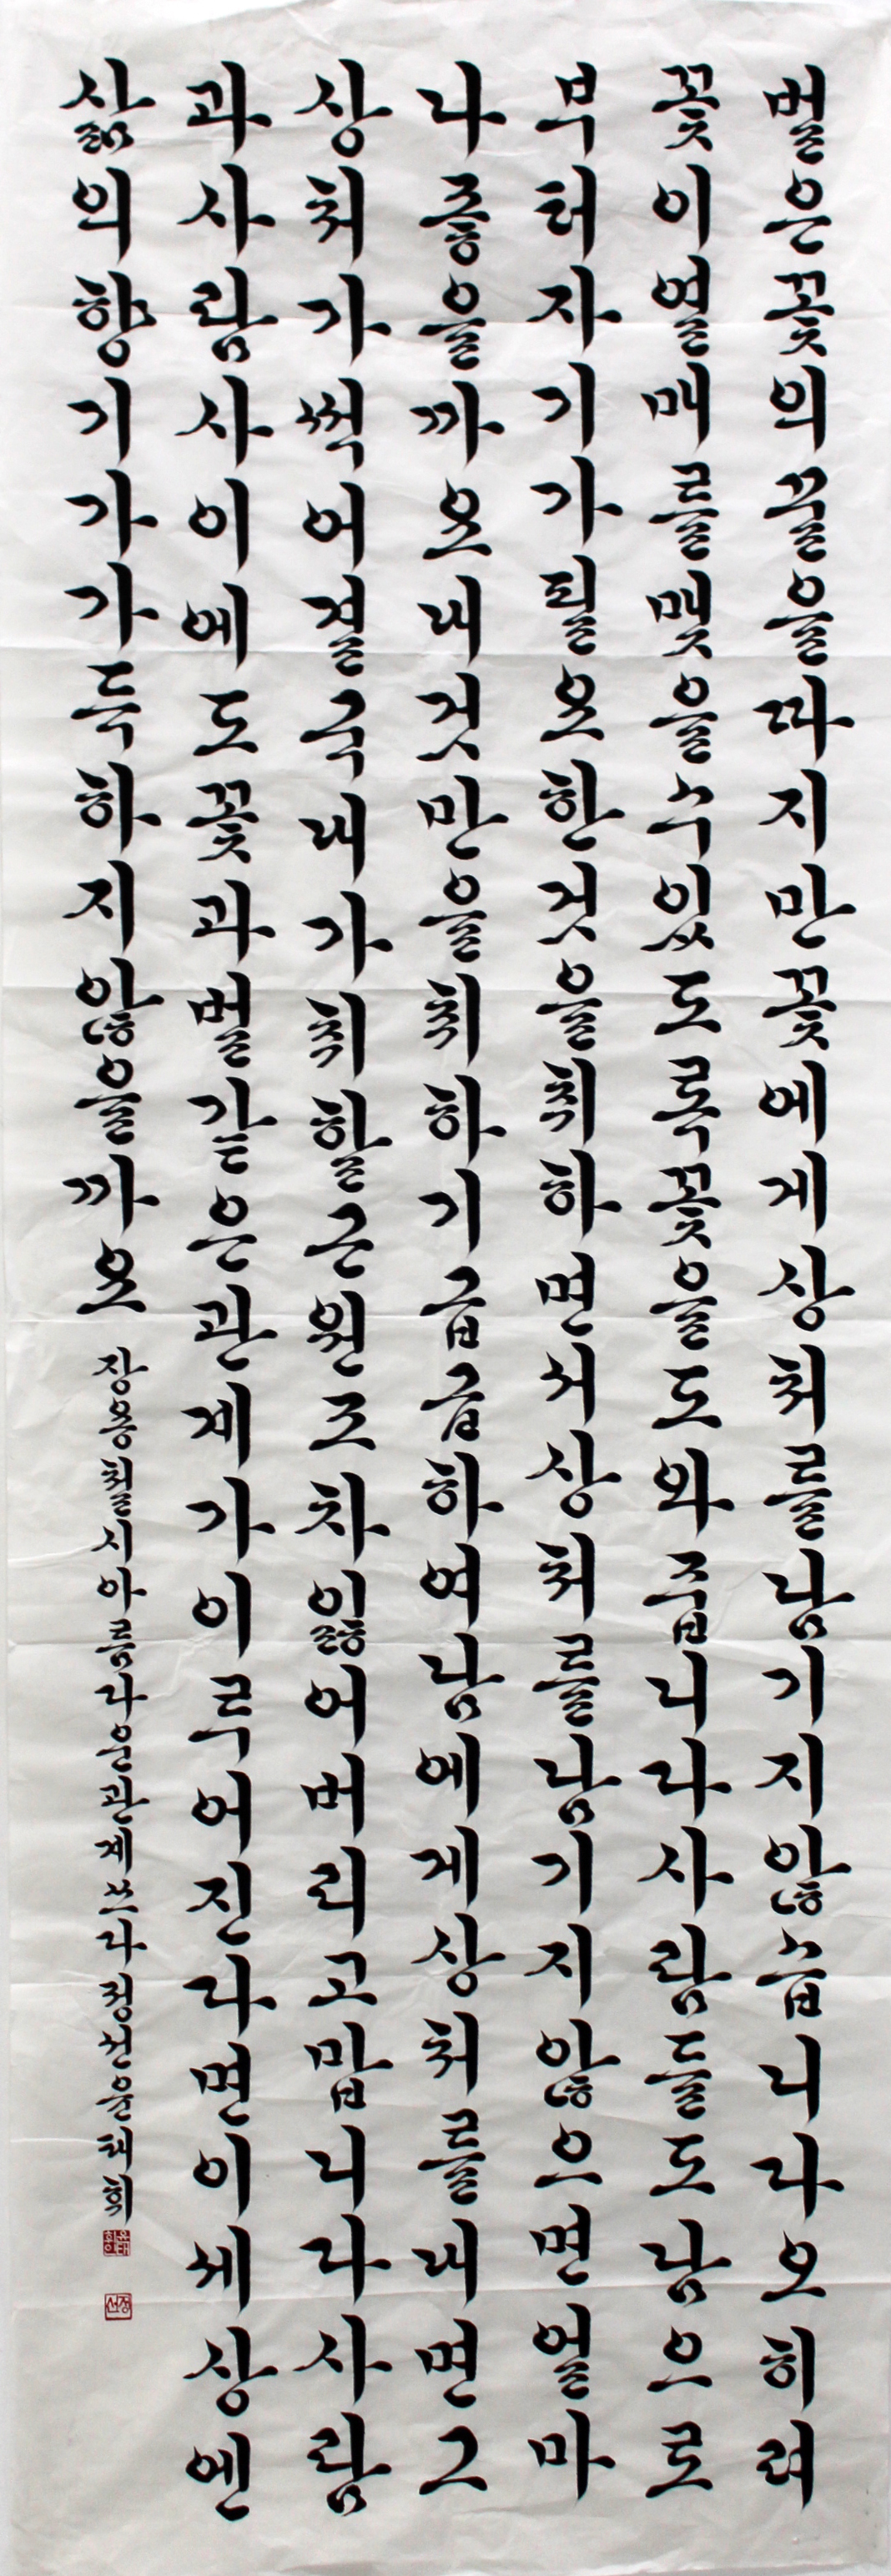 벌은꽃의꿀을따지만꽃에게상처를남기지않습니다오히려
꽃이열매를맺을수있도록꽃을도와줍니다사람들도남으로
부터자기가필요한것을취하면서상처를남기지않으면얼마
나좋을까요내것만을취하기급급하여남에게상처를내면그
상처가썩어결국내가취할근원조차잃어버리고맙니다사람
과사람사이에도꽃과벌같은관계가이루어진다면이세상엔
삶의향기가가득하지않을까요
장용철시아름다운관계쓰다정선윤
정선